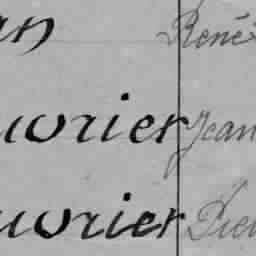 an René
uvrier Jean
uvrier